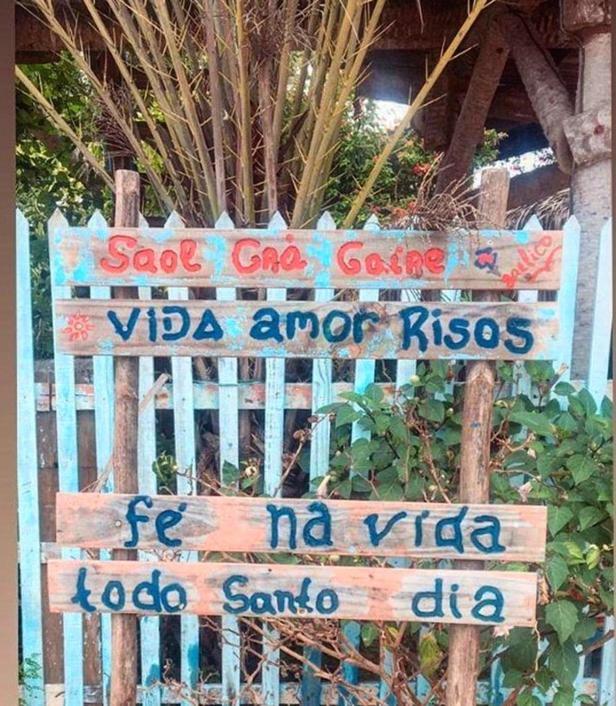 Saol Grá Gaire
VIDA amor Risos
fé na vida
todo Santo dia